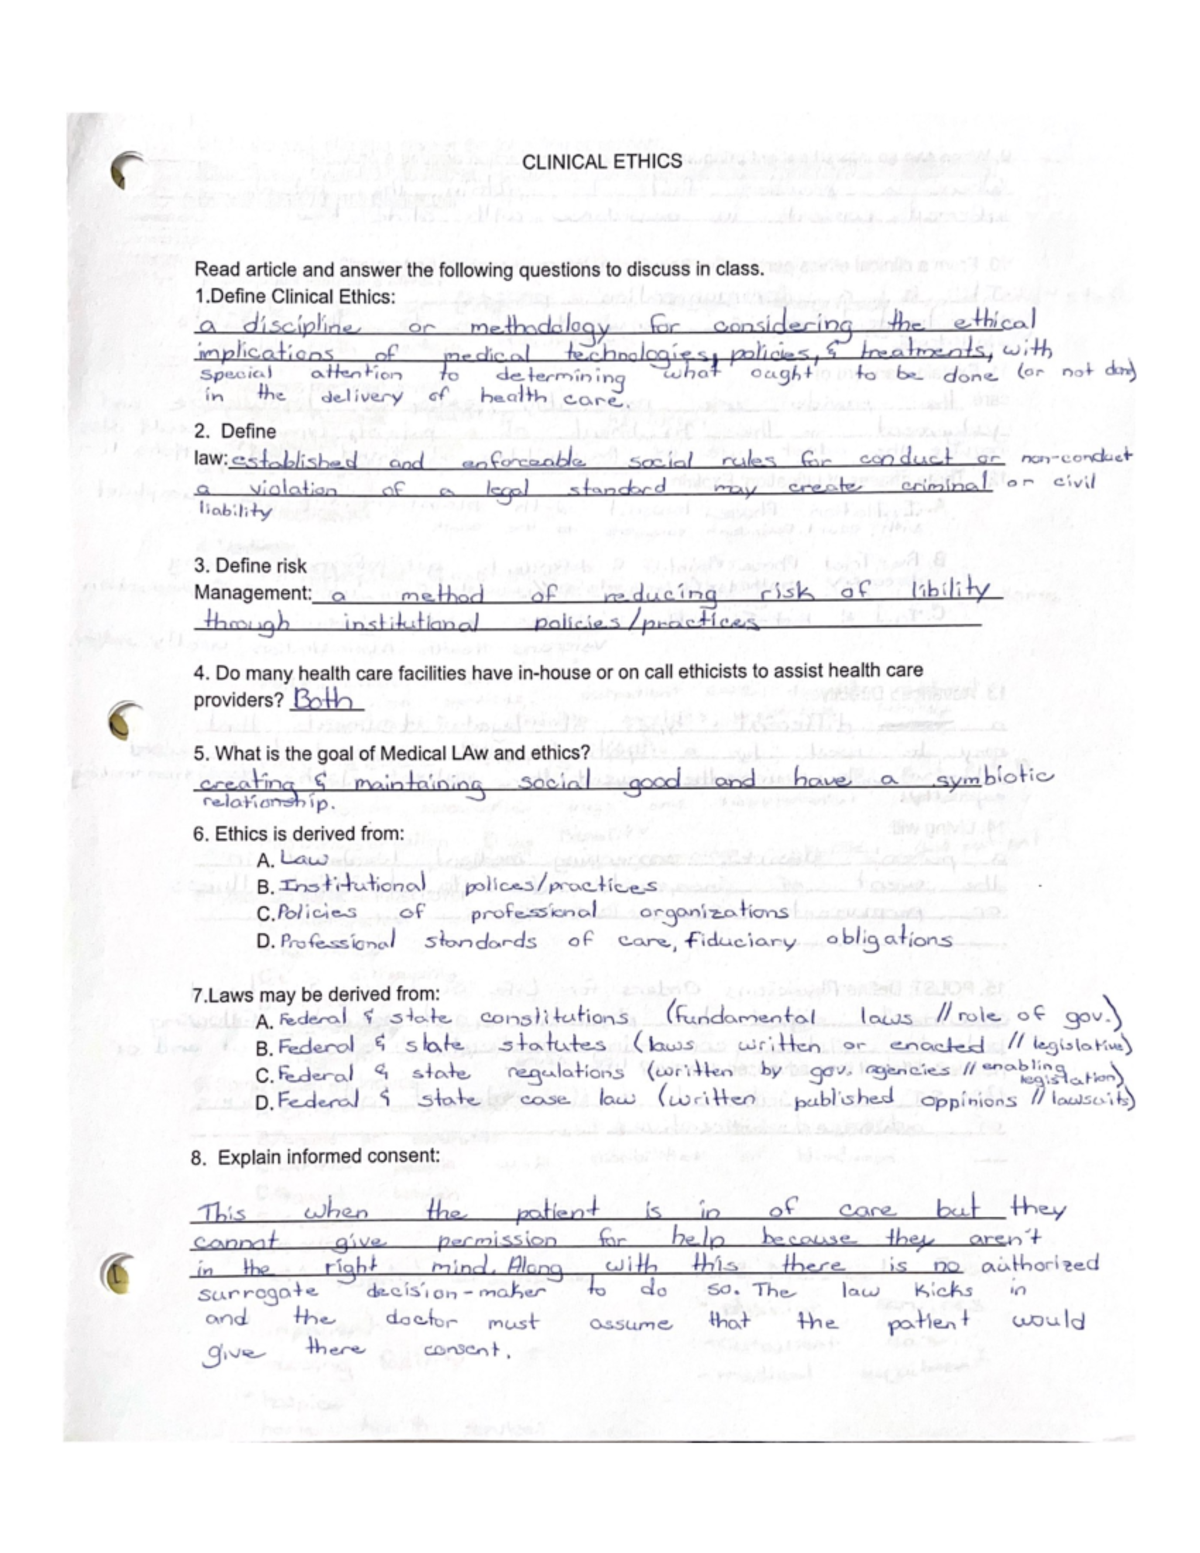 CLINICAL ETHICS
Read article and answer the following questions to discuss in class.
1.Define Clinical Ethics:
a discipline or methodology for considering the ethical
implications of medical technologies, policies, & treatments, with
special attention to determining what ought to be done (or not don)
in the delivery of health care.
2. Define
law: established and enforceable social rules for conduct or non-conduct
a violation of a legal standard may create criminal or civil
liability
3. Define risk
Management: a method of reducing risk of libility
through institutional policies/practices
4. Do many health care facilities have in-house or on call ethicists to assist health care
providers? Both
5. What is the goal of Medical LAw and ethics?
creating & maintaining social good and have a symbiotic
relationship.
6. Ethics is derived from:
A. Law
B. Institutional polices/practices
C. Policies of professional organizations
D. Professional standards of care, fiduciary obligations
7.Laws may be derived from:
A. Federal & state constitutions (fundamental laws // role of gov.)
B. Federal & state statutes (laws written or enacted // legislative)
C. Federal & state regulations (written by gov. agencies // enabling
legislation)
D. Federal & state case law (written published oppinions // lawsuits)
8. Explain informed consent:
This when the patient is in of care but they
cannot give permission for help because they aren't
in the right mind. Along with this there is no authorized
surrogate decision-maker to do so. The law kicks in
and the doctor must assume that the patient would
give there consent.